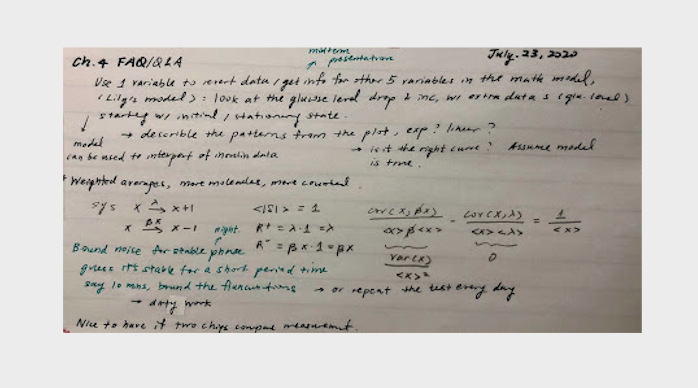 midterm
presentation
July. 23, 2020
Ch. 4 FAQ/Q&A
Use 1 variable to revert data / get info for other 5 variables in the math model,
<Lily's model> : look at the glucose level drop & inc, w/ extra data s (glu. level)
starting w/ initial / stationary state.
→ describle the patterns from the plot, exp? linear?
model
can be used to interpert of insulin data
→ is it the right curve? Assume model
is true.
* Weighted averages, more molecules, more counted
sys x →λ x+1 <|S|> = 1
x →βx x-1 R⁺ = λ·1 = λ
R⁻ = βx·1 = βx
cov(x, βx) / <x>β<x> - cov(x,λ) / <x><λ> = 1 / <x>
var(x) / <x>² 0
Bound noise for stable phase
guess it's stable for a short period time
say 10 mns, bound the fluncuations → or repeat the test every day
→ dirty work
Nice to have if two chips compare measurement.